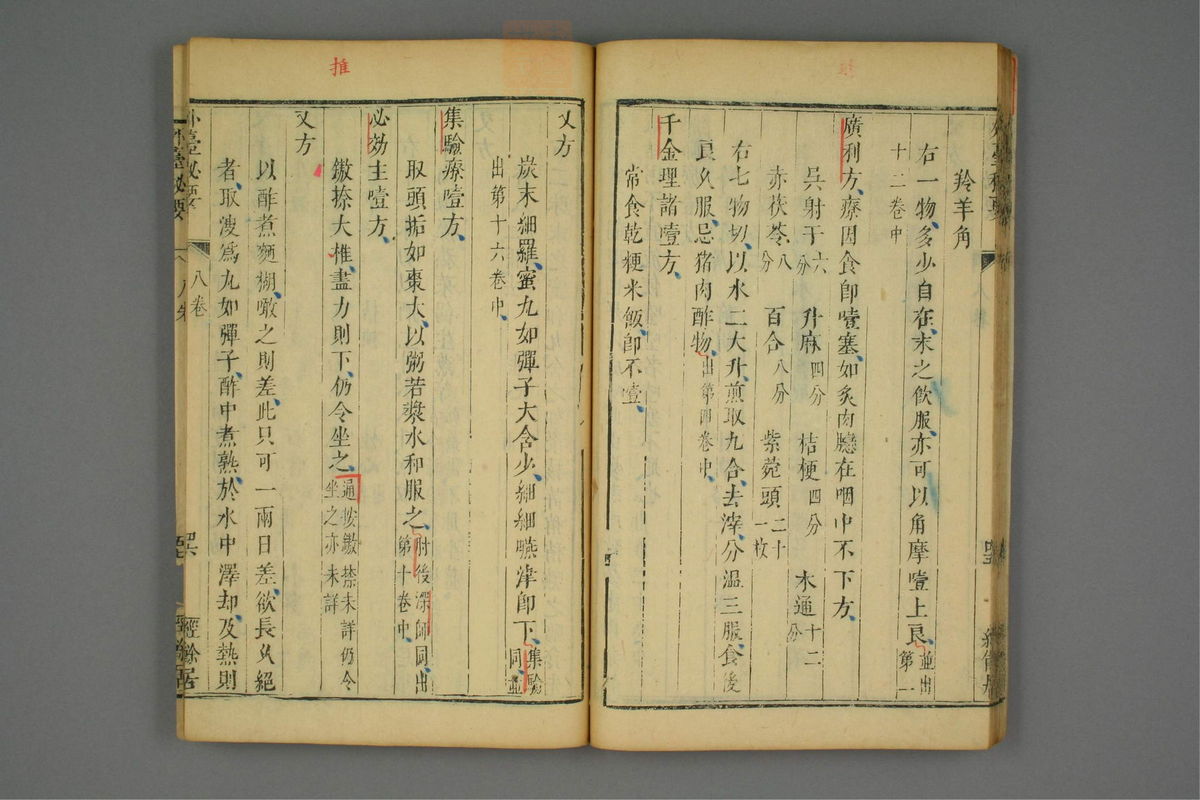 羚羊角
右一物多少自在末之飲服亦可以角摩噎上良並出第一
十二卷中
廣利方療因食即噎塞如炙肉臠在咽中不下方
吳射干六分 升麻四分 桔梗四分 木通十二分
赤茯苓八分 百合八分 紫菀頭二十一枚
右七物切以水二大升煎取九合去滓分溫三服食後
良久服忌猪肉酢物出第四卷中
千金理諸噎方
常食乾粳米飯即不噎
推
又方
炭末細羅蜜丸如彈子大含少細細嚥津即下集驗同並
出第十六卷中
集驗療噎方
取頭垢如棗大以粥若漿水和服之肘後深師同出第十卷中
必効主噎方
鏾捺大椎盡力則下仍令坐之通按鏾禁未詳仍令坐之亦未詳
又方
以酢煮麵糊噉之則差此只可一兩日差欲長久絕
者取溲為丸如彈子酢中煮熟於水中澤却及熱則
外臺秘要
八卷
經餘居